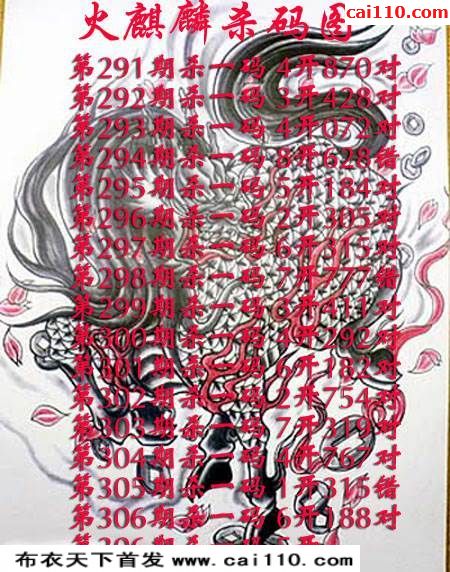 cai110.com
火麒麟杀码图
第291期杀一码 4开870对
第292期杀一码 3开428对
第293期杀一码 4开072对
第294期杀一码 8开628错
第295期杀一码 5开184对
第296期杀一码 2开305对
第297期杀一码 6开315对
第298期杀一码 7开777错
第299期杀一码 3开411对
第300期杀一码 4开292对
第301期杀一码 6开182对
第302期杀一码 2开754对
第303期杀一码 7开319对
第304期杀一码 4开767对
第305期杀一码 1开315错
第306期杀一码 6开188对
布衣天下首发 www.cai110.com